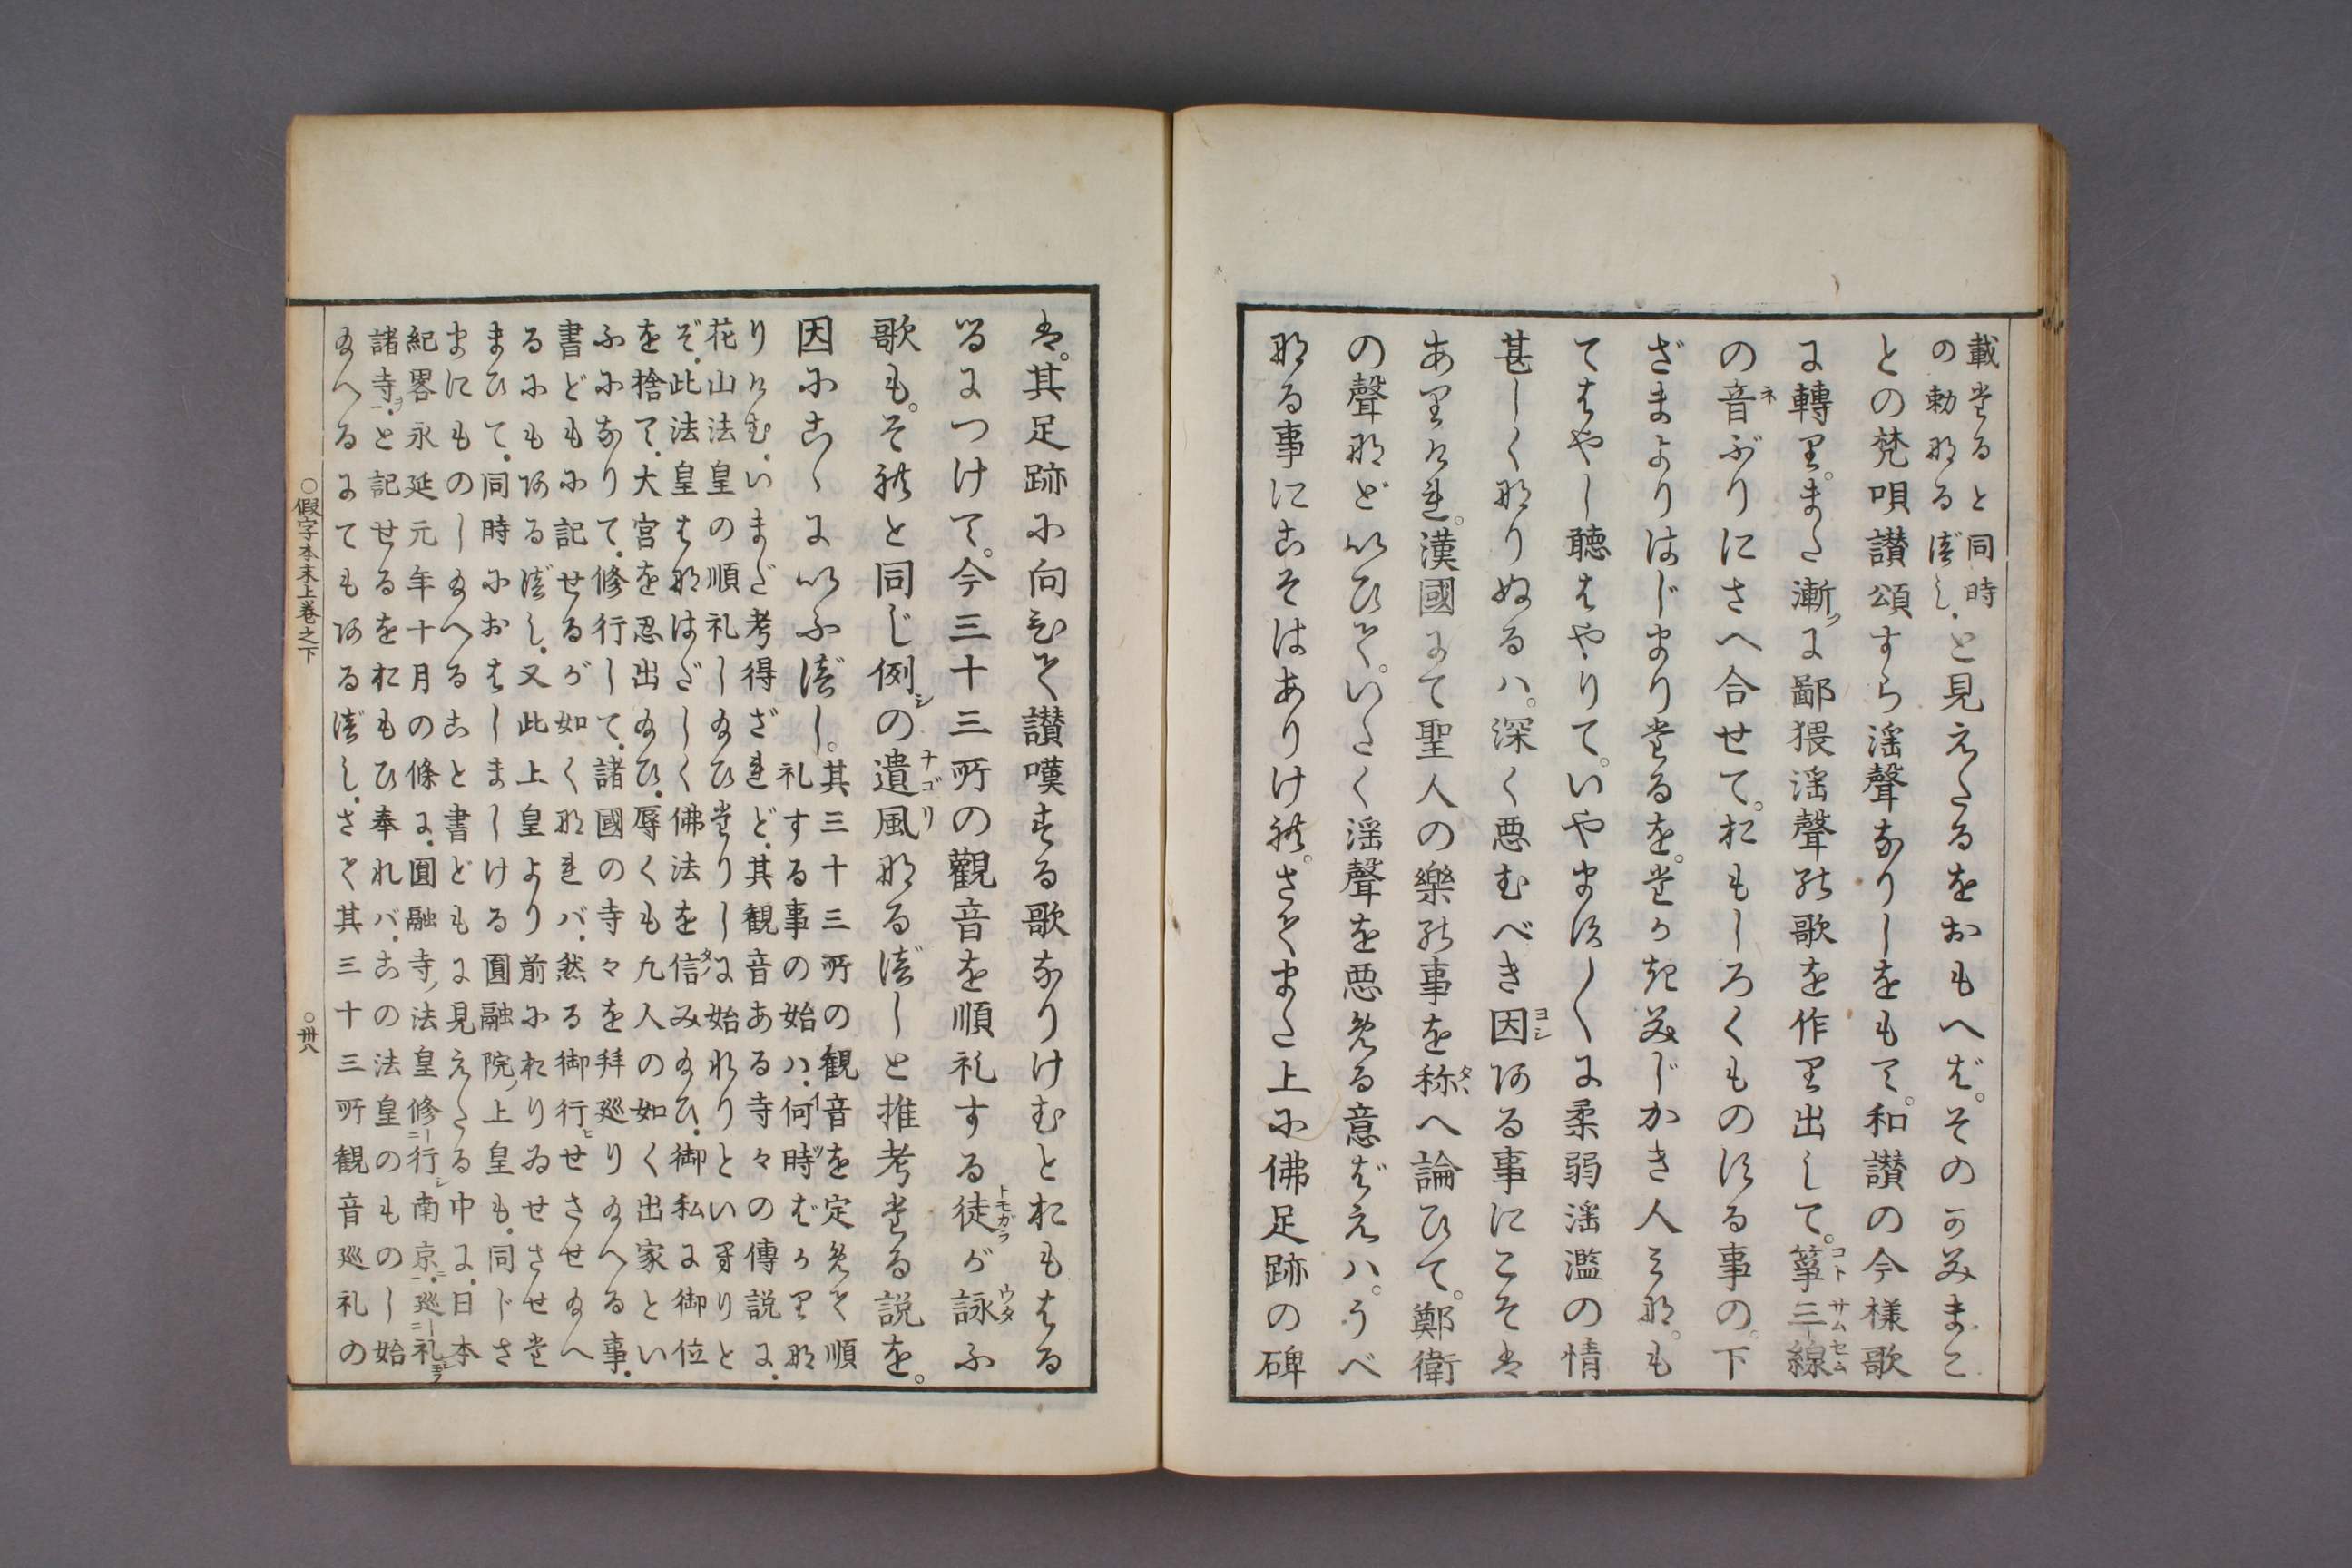 載たると同時
の勅なるべし
と見えたるをおもへば。そのかみまこ
との梵唄讃頌すら滛聲なりしをもて。和讃の今様歌
に轉り。また漸に鄙猥滛聲の歌を作り出して。箏三線
の音ぶりにさへ合せて。おもしろくものする事の。下
ざまよりはじまりたるを。たかきみじかき人みな。も
てはやし聴はやりて。いやますますに柔弱滛濫の情
甚しくなりぬるハ。深く悪むべき因ある事にこそは
ありけれ。漢國にて聖人の樂の事を称へ論ひて。鄭衛
の聲など以ひて。いたく滛聲を悪める意ばえハ。うべ
なる事にこそはありけれ。さてまた上に佛足跡の碑
は。其足跡に向ひて讃嘆する歌なりけむとおもはる
るにつけて。今三十三所の觀音を順礼する徒が詠ふ
歌も。それと同じ例の遺風なるべしと推考たる説を。
因にこゝに以ふべし。
其三十三所の観音を定めて順
礼する事の始ハ.何時ばかりな
りけむ.いまだ考得ざれど.其観音ある寺々の傳説に.
花山法皇の順礼し給ひたりしに始れりといへりと
ぞ.此法皇はなはだしく佛法を信み給ひ.御私に御位
を捨て.大宮を忍出給ひ.辱くも凡人の如く出家とい
ふになりて.修行して.諸國の寺々を拜巡り給へる事.
書どもに記せるが如くなれバ.然る御行せさせ給へ
るにもあるべし.又此上皇より前におりゐせさせた
まひて.同時におはしましける圓融院ノ上皇も.同じさ
まにものし給へること書どもに見えたる中に.日本
紀畧永延元年十月の條に.圓融寺ノ法皇修行南京.巡礼
諸寺.と記せるをおもひ奉れバ.この法皇のものし始
給へるにてもあるべし.さて其三十三所観音巡礼の
○假字本末上巻之下
○卅八